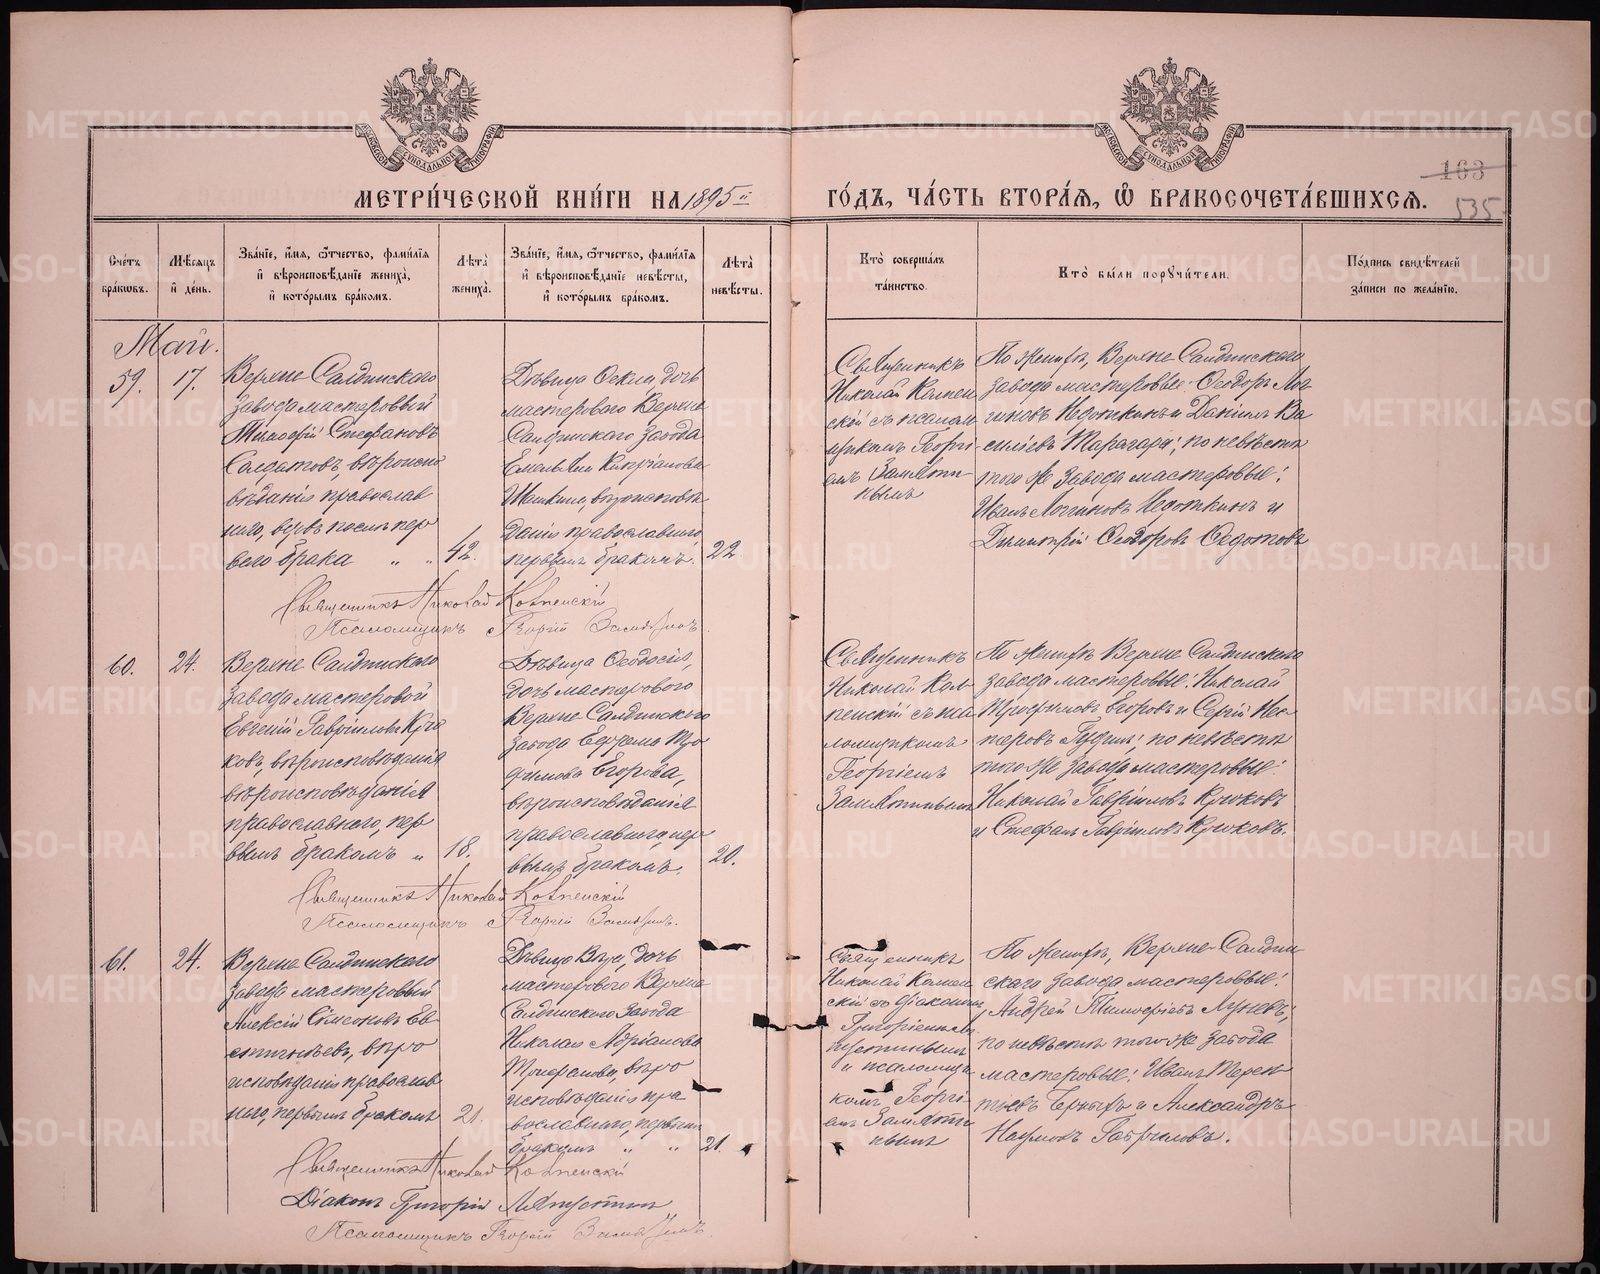 МОСКОВСКОЙ СѴНОДАЛЬНОЙ ТИПОГРАФІИ
МОСКОВСКОЙ СѴНОДАЛЬНОЙ ТИПОГРАФІИ
163
535
МЕТРИ́ЧЕСКОЙ КНИ́ГИ НА 1895й
ГО́ДЪ, ЧА́СТЬ ВТОРА́Я, Ѿ БРАКОСОЧЕТА́ВШИХСЯ.
Сче́тъ бра́ковъ.
Мѣ́сяцъ и́ де́нь.
Зва́нїе, и́мя, ѻ́тчество, фами́лїя и́ вѣроисповѣ́данїе жениха̀, и́ кото́рымъ бра́комъ.
Лѣта̀ жениха̀.
Зва́нїе, и́мя, ѻ́тчество, фами́лїя и́ вѣроисповѣ́данїе невѣ́сты, и́ кото́рымъ бра́комъ.
Лѣта̀ невѣ́сты.
Кто̀ соверша́лъ та́инство.
Кто̀ бы́ли порꙋчи́тели.
По́дпись свидѣ́телей за́писи по жела́нїю.
Май.
59.
17.
Верхне Салдинского
завода мастеровый
Тимофей Стефановъ
Солдатовъ, вѣроиспо
вѣданія православ
наго, вдовъ послѣ пер
ваго брака " "
42.
Дѣвица Фекла, дочь
мастерового Верхне
Салдинского завода
Емельяна Кипріанова
вѣроисповѣ
данія православнаго
первымъ бракомъ.
22
Священникъ
Николай Колпен
скій съ псалом
щикомъ Георгі
емъ Замяти
нымъ
По женихѣ, Верхне Салдинского
завода мастеровые: Феодоръ Лог
гиновъ Недоткинъ и Даніилъ Ва
сильевъ; по невѣстѣ
того же завода мастеровые:
Иванъ Логгиновъ Недоткинъ и
Димитрій Феодоровъ Федотовъ
Священникъ Николай Колпенскій
Псаломщикъ Георгій Замятинъ.
60.
24.
Верхне Салдинского
завода мастеровой
Евгеній Гавріиловъ Крю
ковъ, вѣроисповѣданія
вѣроисповѣданія
православнаго, пер
вымъ бракомъ "
18.
Дѣвица Феодосія,
дочь мастерового
Верхне Салдинского
завода Ефрема Тро
фимова Егорова,
вѣроисповѣданія
православнаго, пер
вымъ бракомъ.
20.
Священникъ
Николай Кол
пенскій съ пса
ломщикомъ
Георгіемъ
Замятинымъ
По женихѣ Верхне Салдинского
завода мастеровые: Николай
Трофимовъ Егоровъ и Сергій Нес
теровъ; по невѣстѣ
того же завода мастеровые:
Николай Гавріиловъ Крюковъ
и Стефанъ Гавріиловъ Крюковъ.
Священникъ Николай Колпенскій
Псаломщикъ Георгій Замятинъ.
61.
24.
Верхне Салдинского
завода мастеровый
Алексій Симеоновъ Ев
стигнѣевъ, вѣро
исповѣданія православ
наго, первымъ бракомъ
21.
Дѣвица Вѣра, дочь
мастерового Верхне
Салдинского завода
Николая Адріанова
вѣро
исповѣданія пра
вославнаго, первымъ
бракомъ " "
21.
Священникъ
Николай Колпен
скій съ діакономъ
Григоріемъ Ля
пустинымъ
и псаломщи
комъ Георгі
емъ Замяти
нымъ
По женихѣ, Верхне-Салдин
скаго завода мастеровые:
Андрей Тимофеевъ;
по невѣстѣ того же завода
мастеровые: Иванъ Терен
тьевъ и Александръ
Наумовъ Гавриловъ.
Священникъ Николай Колпенскій
Діаконъ Григорій Ляпустинъ
Псаломщикъ Георгій Замятинъ.
METRIKI.GASO-URAL.RU